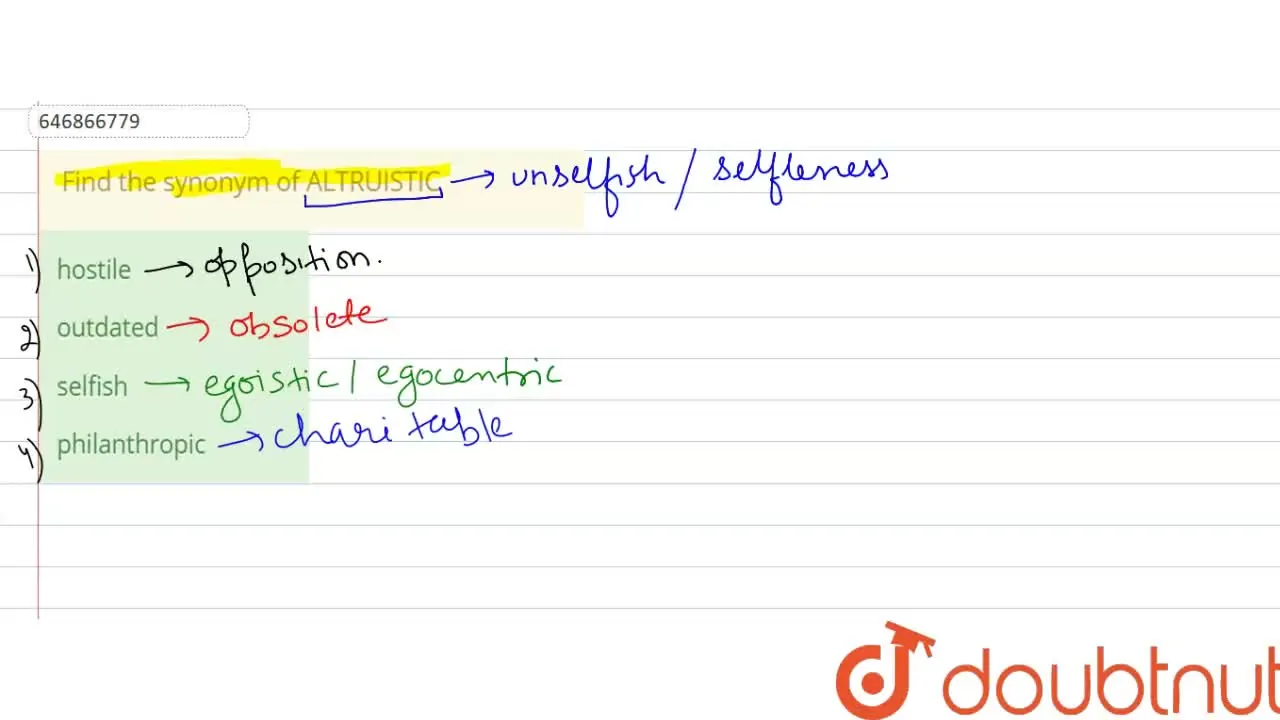 646866779
Find the synonym of ALTRUISTIC → unselfish / selfleness
1) hostile → opposition.
2) outdated → obsolete
3) selfish → egoistic / egocentric
4) philanthropic → charitable
doubtnut